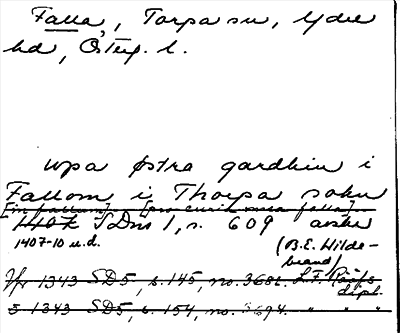 Falla, Torpa sn, Ydre
hd, Östug. l.
uppa østra gardhin i
Fallom i Thorpa sokn
[in fallum] [pro curia mea falla]
1407 SDns 1, s. 609 avskr
1407-10 u.d. (B.E. Hilde-
brand)
Yfr 1343 SD5, s. 145, no. 3682. L.F. Rääfs
dipl.
5 1343 SD5, s. 154, no. 3694. " " "